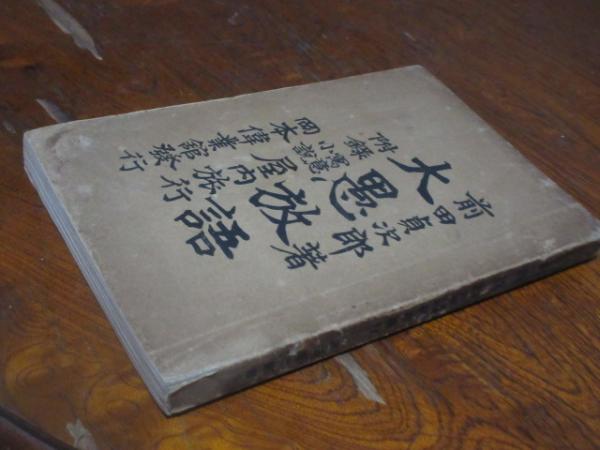 前田貞次郎著
大愚放語
附録 寓意小説 屋内旅行
岡本偉業館發行